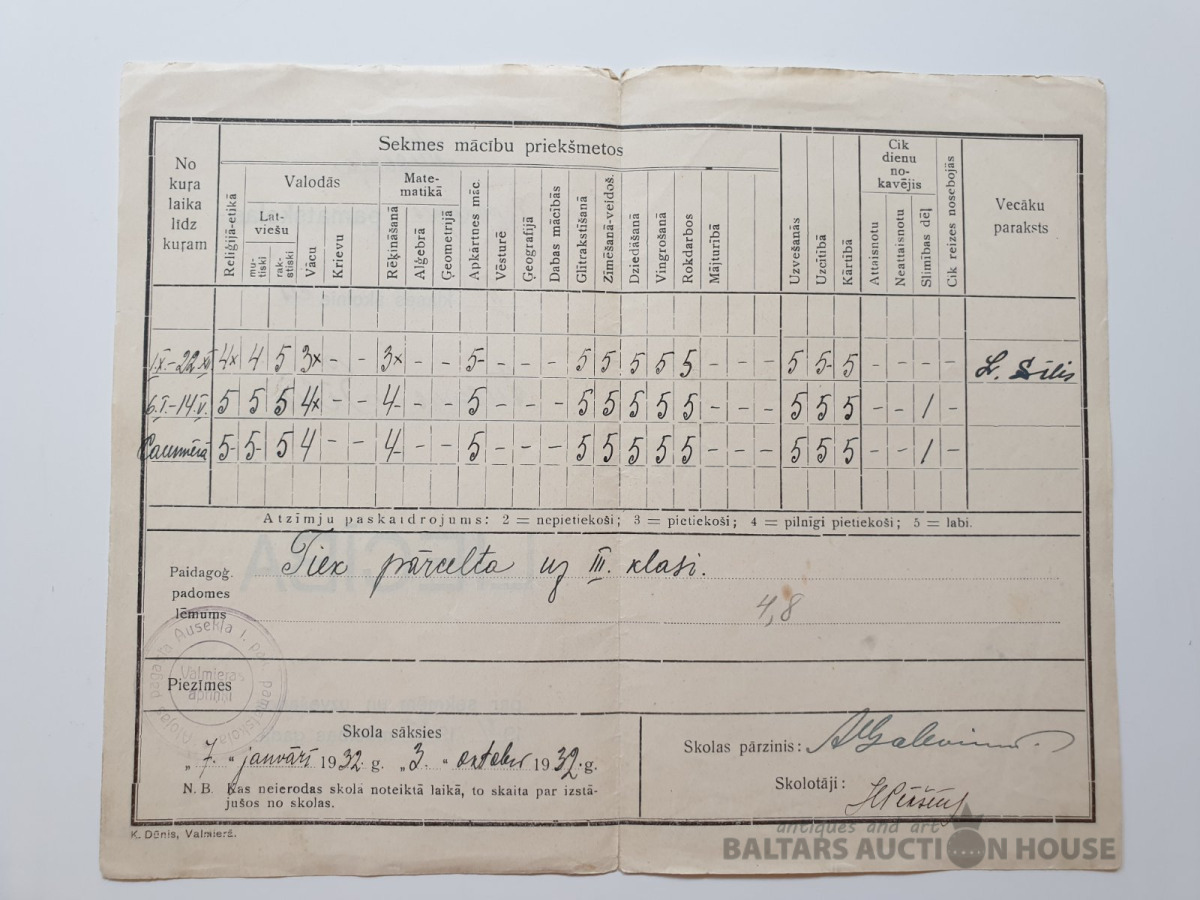 Sekmes mācību priekšmetos
No kuŗa laika līdz kuŗam
Reliģijā-ētikā
Valodās
Latviešu
mutiski
rakstiski
Vācu
Krievu
Matematikā
Rēķināšanā
Alģebrā
Ģeometrijā
Apkārtnes māc.
Vēsturē
Ģeografijā
Dabas mācībās
Glītrakstīšanā
Zīmēšanā-veidoš.
Dziedāšanā
Vingrošanā
Rokdarbos
Mājturībā
Uzvešanās
Uzcītībā
Kārtībā
Cik dienu nokavējis
Attaisnotu
Neattaisnotu
Slimības dēļ
Cik reizes nosebojās
Vecāku paraksts
1.IX.-22.XII 4x 4 5 3x - - 3x - - 5- - - - 5 5 5 5 5 - - - 5 5- 5 - - - - L. Silis
6.I.-14.V. 5 5 5 4x - - 4- - - 5 - - - 5 5 5 5 5 - - - 5 5 5 - - 1 -
Caurmērā 5- 5- 5 4 - - 4- - - 5 - - - 5 5 5 5 5 - - - 5 5 5 - - 1 -
Atzīmju paskaidrojums: 2 = nepietiekoši; 3 = pietiekoši; 4 = pilnīgi pietiekoši; 5 = labi.
Paidagoģ. padomes lēmums
Tiek pārcelta uz III. klasi.
4,8
Valmieras apriņķī
Piezīmes
Skola sāksies
„7." janvārī 1932. g. „3." oktobrī 1932. g.
N. B. Kas neierodas skolā noteiktā laikā, to skaita par izstā-
jušos no skolas.
Skolas pārzinis:
Skolotāji:
K. Dūnis, Valmierā.
antiques and art
BALTARS AUCTION HOUSE